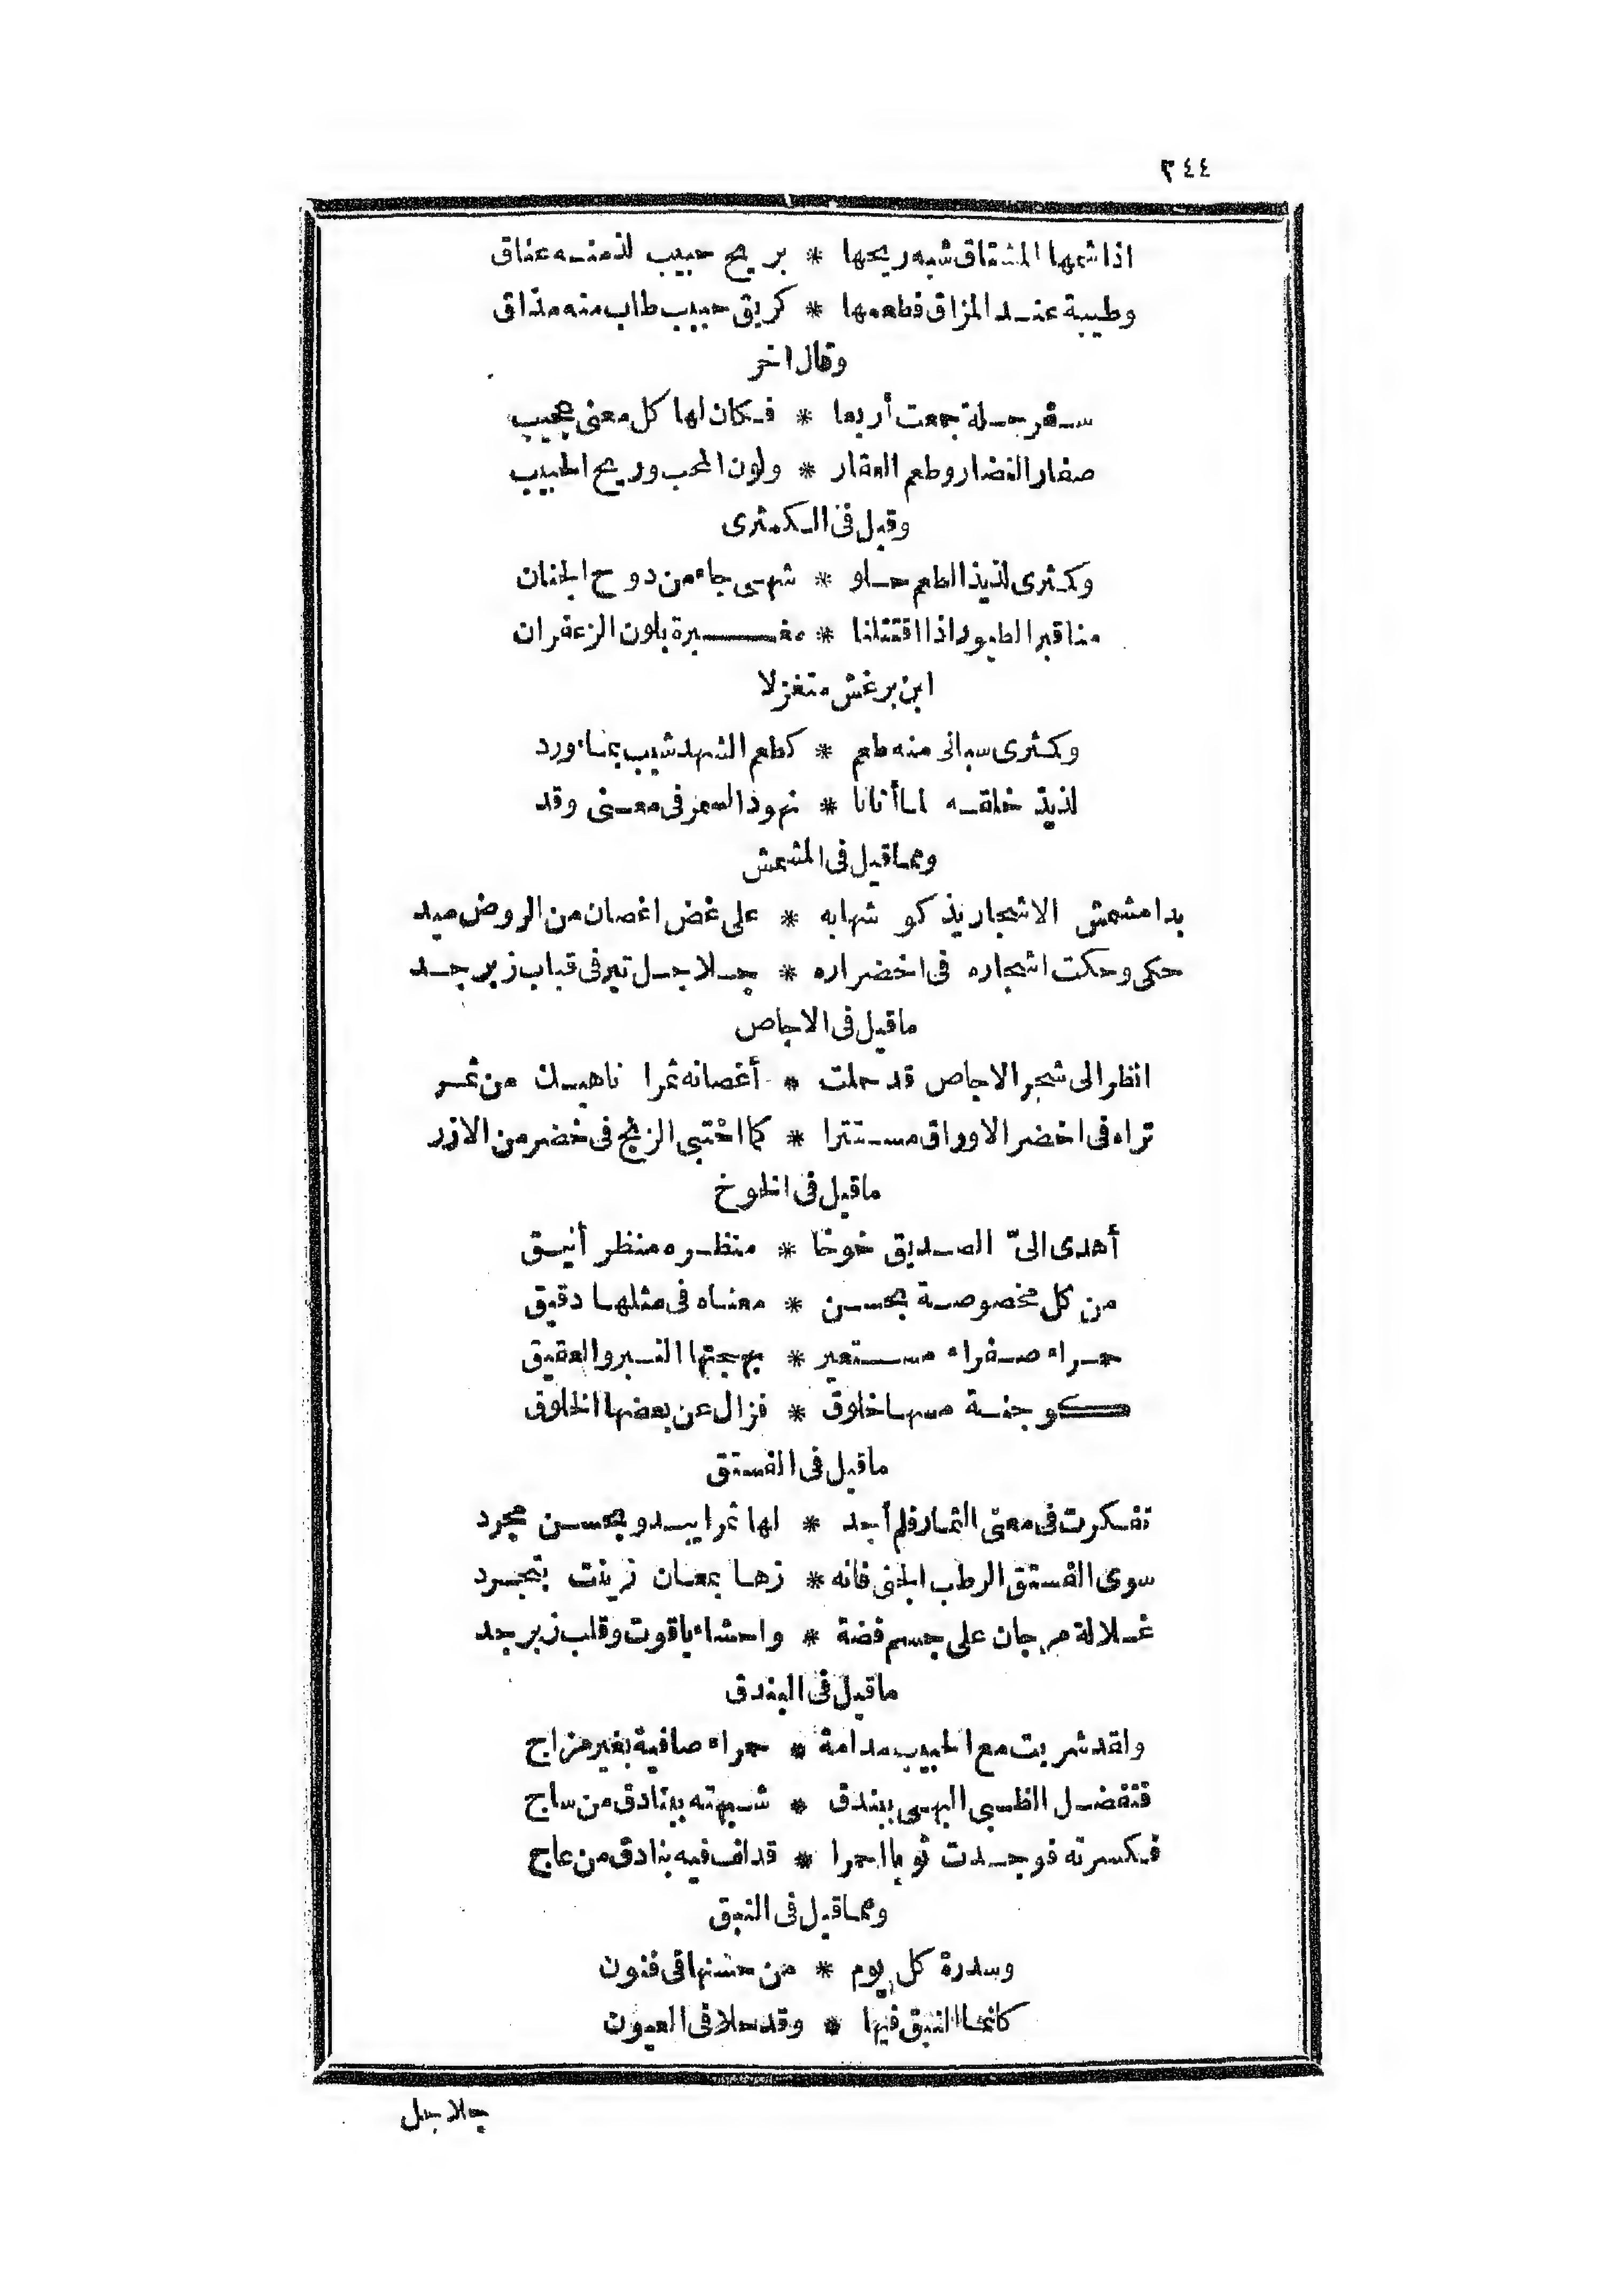 ٣٤٤
اذا شمها المشتاق شبه ريحها * بريح حبيب لذ منه عناق
وطيبة عند المزاق فطعمها * كريق حبيب طاب منه مذاق
وقال اخر
سفرجلة جمعت أربعا * فكان لها كل معنى عجيب
صفار النضار وطعم العقار * ولون المحب وريح الحبيب
وقيل فى الكمثرى
وكمثرى لذيذ الطعم حلو * شهى جاء من دوح الجنان
مناقير الطيور اذا اقتتلنا * مغبرة بلون الزعفران
ابن برغش متغزلا
وكمثرى سبانى منه طعم * كطعم الشهد شيب بماء ورد
لذيذ خلقه لما أتانا * نهود السمر فى معنى وقد
ومما قيل فى المشمش
بدا مشمش الاشجار يذكو شهابه * على غض اغصان من الروض ميد
حكى وحكت اشجاره فى اخضراره * جلاجل تبر فى قباب زبرجد
ما قيل فى الاجاص
انظر الى شجر الاجاص قد حملت * أغصانه ثمرا ناهيك من ثمر
تراه فى اخضر الاوراق مستترا * كما اختبى الزنج فى خضر من الازر
ما قيل فى الخوخ
أهدى الىّ الصديق خوخا * منظره منظر أنيق
من كل مخصوصة بحسن * معناه فى مثلها دقيق
حمراء صفراء مستعير * بهجتها التبر والعقيق
كوجنة مسها خلوق * فزال عن بعضها الخلوق
ما قيل فى الفستق
تفكرت فى معنى الثمار فلم أجد * لها ثمرا يبدو بحسن مجرد
سوى الفستق الرطب الجنى فانه * زها بمعان زينت بتجرد
غلالة مرجان على جسم فضة * واحشاء ياقوت وقلب زبرجد
ما قيل فى البندق
ولقد شربت مع الحبيب مدامة * حمراء صافية بغير مزاج
فتفضل الظبى البهى ببندق * شبهته ببنادق من ساج
فكسرته فوجدت ثوبا احمرا * قد لف فيه بنادق من عاج
ومما قيل فى النبق
وسدرة كل يوم * من حسنها فى فنون
كانما النبق فيها * وقد حلا فى العيون
جلاجل